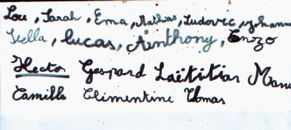 Lou, Sarah, Ema, Mathias, Ludovic, Johann
Stella, Lucas, Anthony, Enzo
Hector Gaspard Laëtitia Manu
Camille Clémentine Thomas